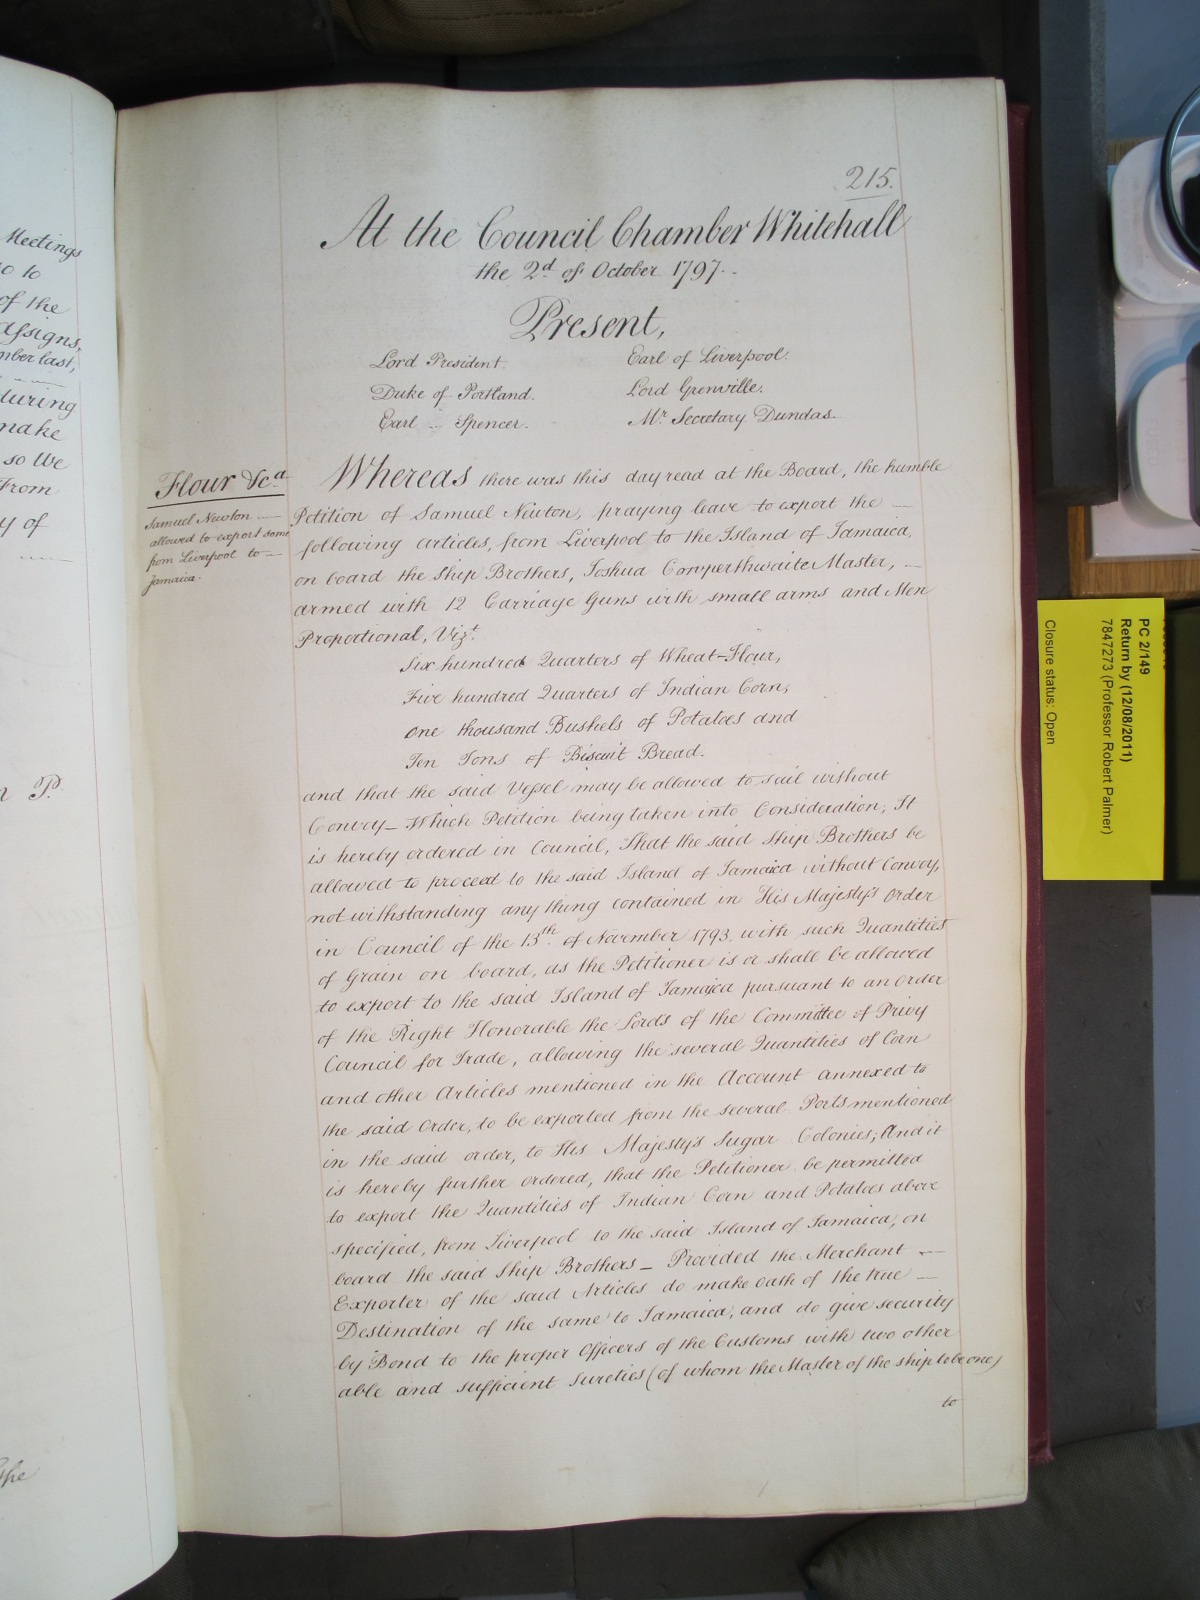 Meetings
to
of the
assigns,
mber last,
during
make
so We
From
y of
P.
The
215.
At the Council Chamber Whitehall
the 2d of October 1797.
Present,
Lord President. Earl of Liverpool.
Duke of Portland. Lord Grenville.
Earl Spencer. Mr. Secretary Dundas.
Flour &ca
Samuel Newton
allowed to export some
from Liverpool to
Jamaica.
Whereas there was this day read at the Board, the humble
Petition of Samuel Newton, praying leave to export the
following articles, from Liverpool to the Island of Jamaica,
on board the Ship Brothers, Joshua Cowperthwaite Master,
armed with 12 Carriage Guns with small arms and Men
Proportional, Vizt.
Six hundred Quarters of Wheat-Flour,
Five hundred Quarters of Indian Corn,
one thousand Bushels of Potatoes and
Ten Tons of Biscuit Bread.
and that the said Vessel may be allowed to sail without
Convoy_ Which Petition being taken into Consideration, It
is hereby ordered in Council, That the said Ship Brothers be
allowed to proceed to the said Island of Jamaica without Convoy,
notwithstanding any thing contained in His Majesty's Order
in Council of the 13th. of November 1793. with such Quantities
of Grain on board, as the Petitioner is or shall be allowed
to export to the said Island of Jamaica pursuant to an Order
of the Right Honorable the Lords of the Committee of Privy
Council for Trade, allowing the several Quantities of Corn
and other Articles mentioned in the Account annexed to
the said Order, to be exported from the several Ports mentioned
in the said order, to His Majesty's Sugar Colonies; And it
is hereby further ordered, that the Petitioner be permitted
to export the Quantities of Indian Corn and Potatoes above
specified, from Liverpool to the said Island of Jamaica, on
board the said Ship Brothers_ Provided the Merchant
Exporter of the said Articles do make oath of the true
Destination of the same to Jamaica, and do give security
by Bond to the proper Officers of the Customs with two other
able and sufficient sureties (of whom the Master of the ship to be one)
to
PC 2/149
Return by (12/08/2011)
7847273 (Professor Robert Palmer)
Closure status: Open